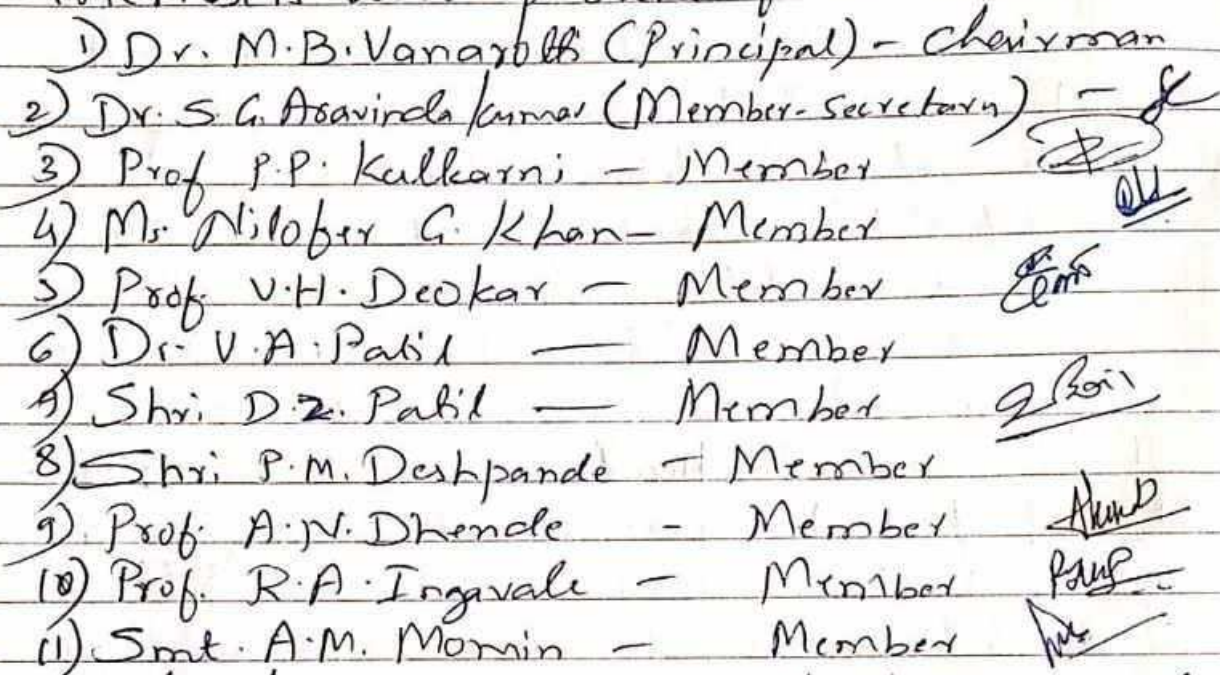 1) Dr. M.B. Vanarotti (Principal) - Chairman
2) Dr. S. G. Aravinda kumar (Member-Secretary) -
3) Prof P.P. Kulkarni - Member
4) Ms. Nilofer G. Khan - Member
5) Prof. V.H. Deokar - Member
6) Dr. V.A. Patil - Member
7) Shri D.Z. Patil - Member
8) Shri P.M. Deshpande - Member
9) Prof. A.N. Dhende - Member
10) Prof. R.A. Ingavale - Member
11) Smt. A.M. Momin - Member